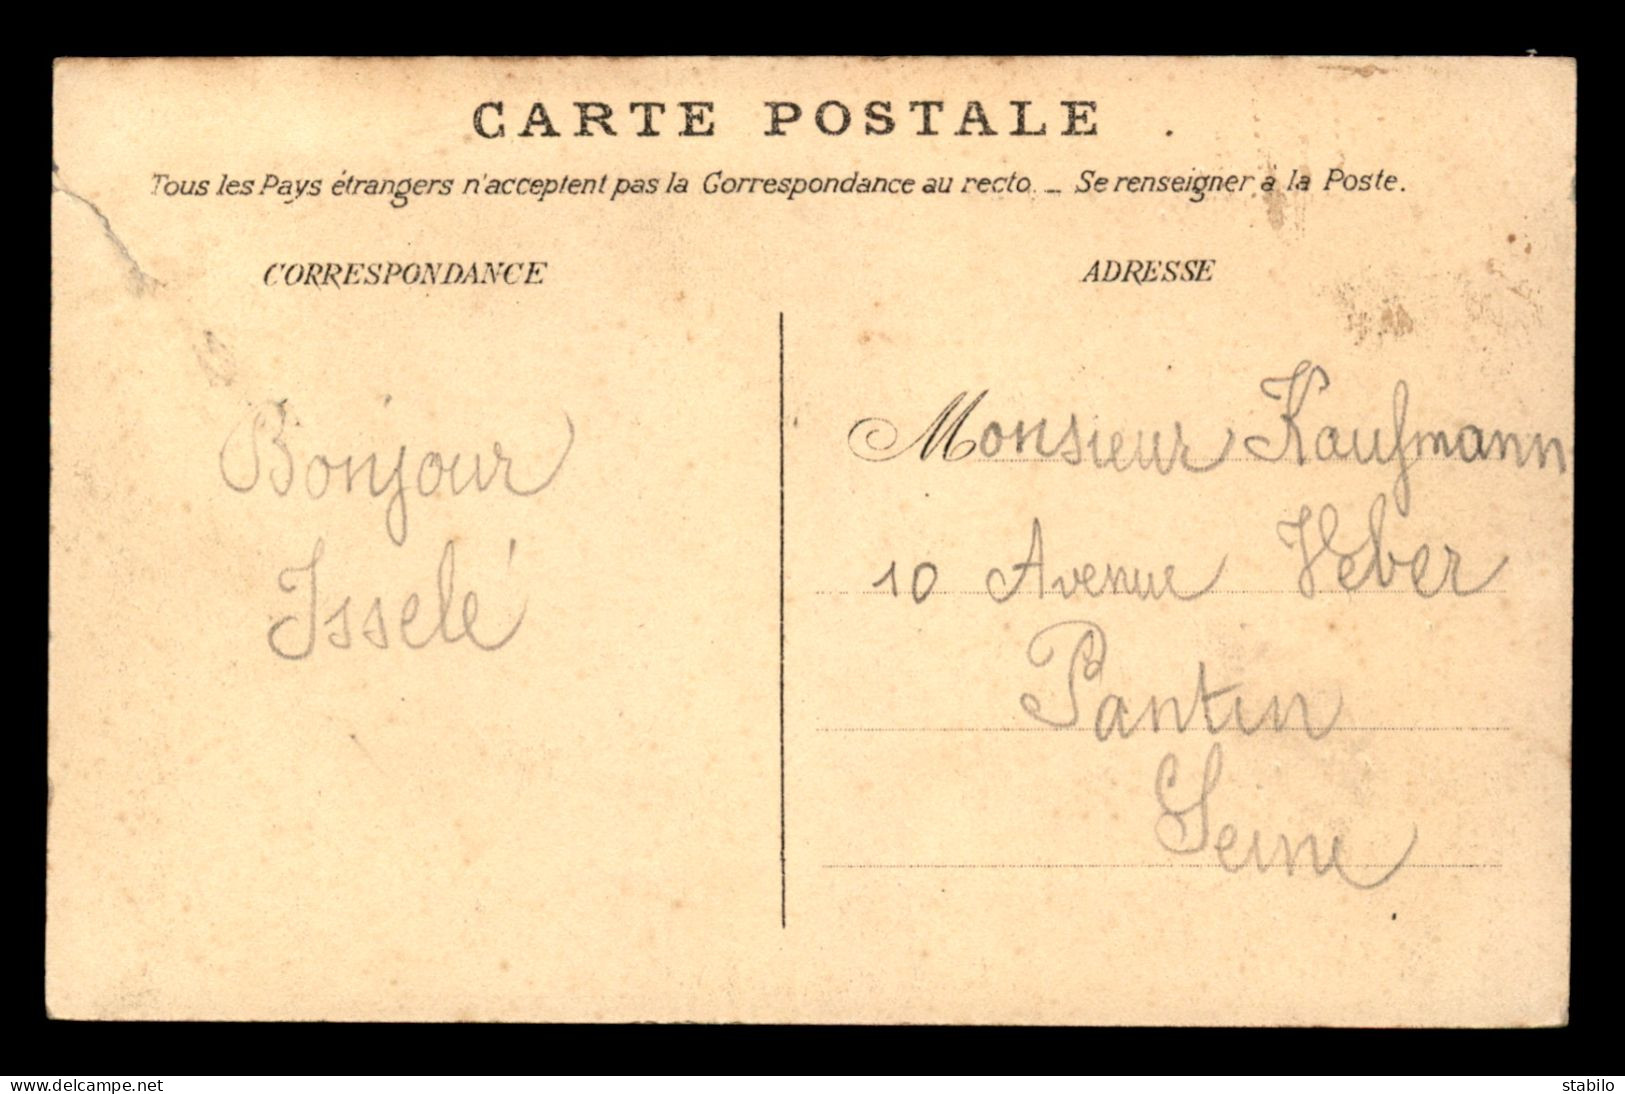 CARTE POSTALE .
Tous les Pays étrangers n'acceptent pas la Correspondance au recto. _ Se renseigner à la Poste.
CORRESPONDANCE
Bonjour
Isselé
ADRESSE
Monsieur Kaufmann
10 Avenue Veber
Pantin
Seine
www.delcampe.net
stabilo